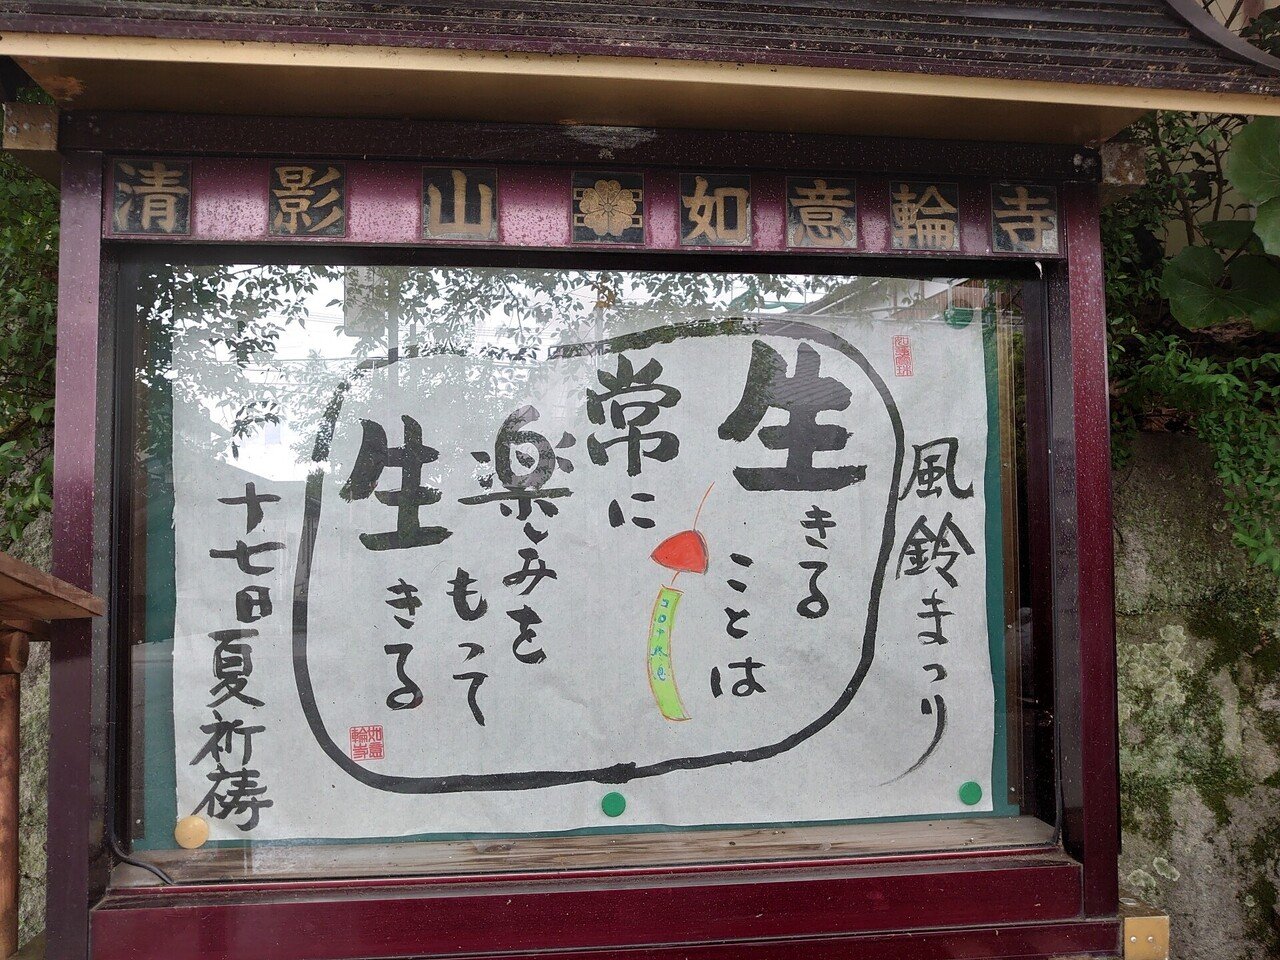 清影山 如意輪寺
風鈴まつり
生きる
ことは
常に
楽しみを
もって
生きる
十七日夏祈祷
如意輪寺